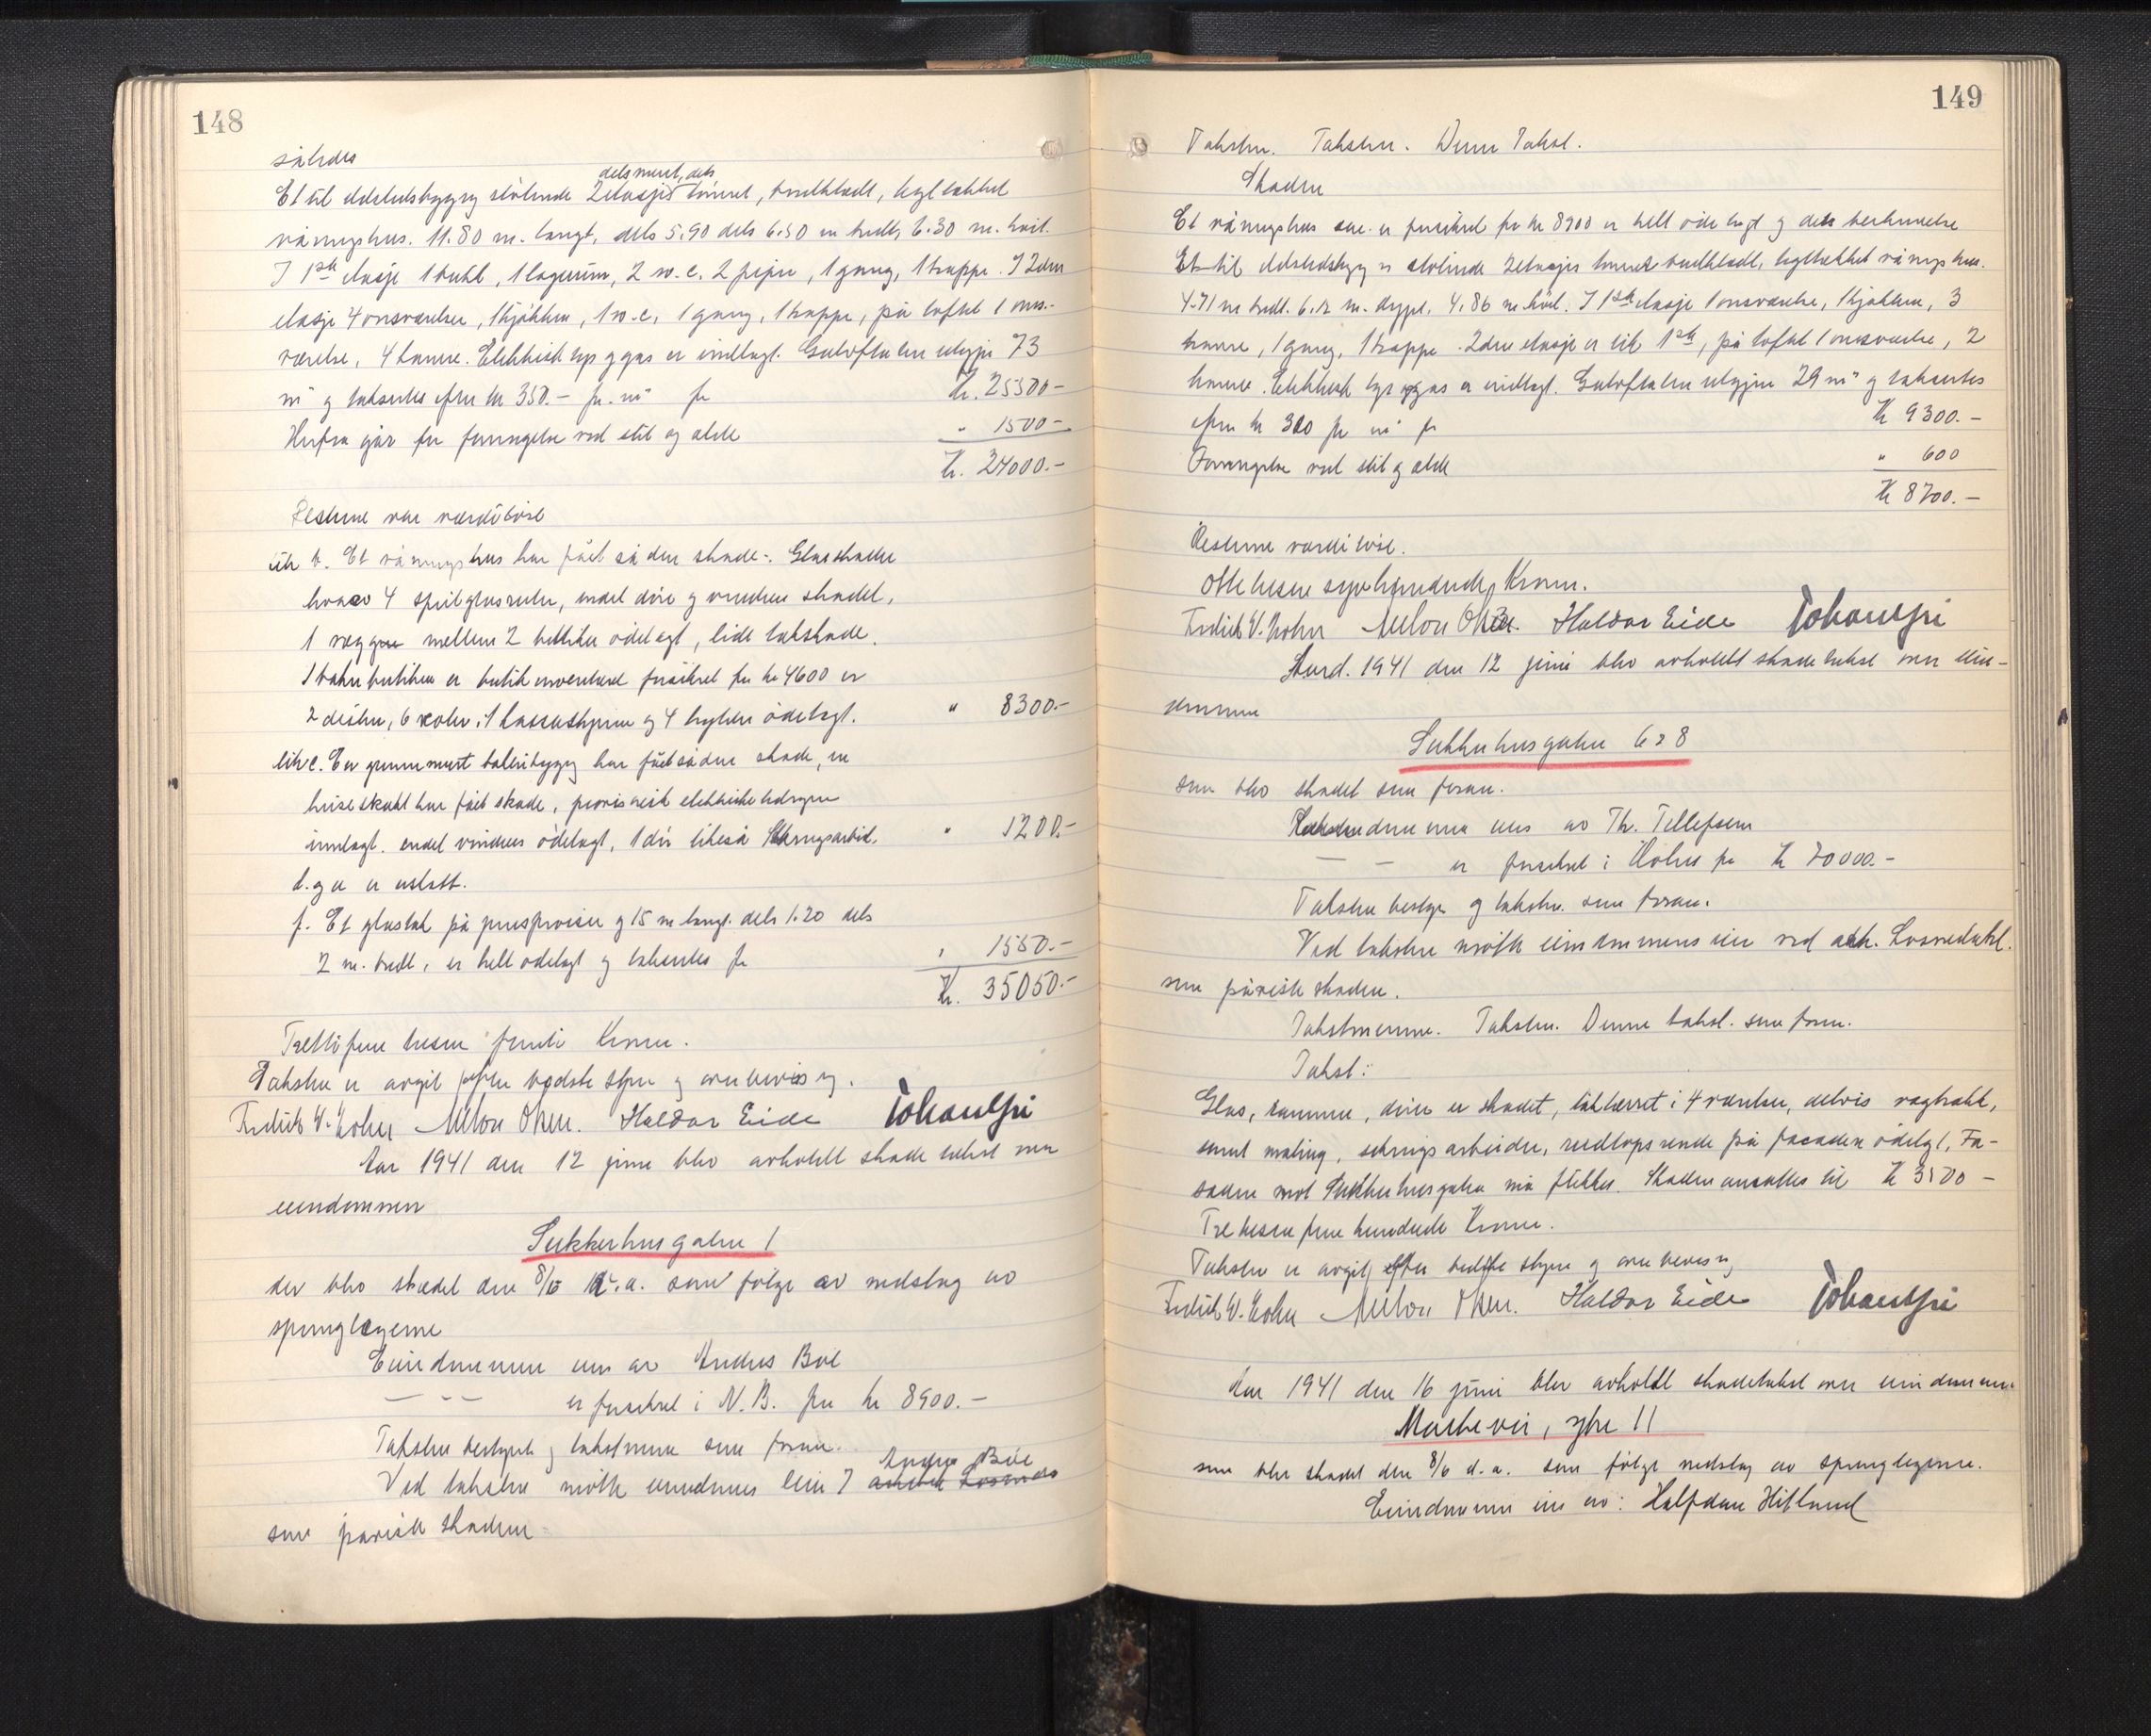 148
således
delsmuret, dels
Et til ildstedsbygg stötende 2etasjes tömret, bordklædt, tegltækket
våningshus. 11.80 m. langt, dels 5.90 dels 6.50 m bredt, 6.30 m. höit.
I 1ste etasje 1 butik, 1 lagerrum, 2 w.c. 2 piper, 1 gang, 1 trappe. I 2den
etasje 4 onsværelser, 1 kjökken, 1 w.c, 1 gang, 1 trappe, på loftet 1 ons-
værelse, 4 kamre. Elektrisk lys og gas er indlagt. Gulvflaten utgjör 73
m² og takseres efter kr 350.- pr. m² for Kr. 25500-
Herfra går for forringelse ved slit og ælde " 1500-
Kr. 24000.-
Resterne var værdilöse
litr b. Et våningshus har fået sådan skade:. Glasskader
hvorav 4 speilglasruter, endel döre og vinduer skadet,
1 væg mellem 2 butikker ödelagt, lidt takskade.
I butikken er butik inventaret forsikret for kr 4600 er
2 diske, 6 reoler, 1 kasseskrin og 4 hylder ödelagt. " 8300.-
litr c. En grunnmuret bakeribygg har fået sådan skade, en
heisesjakt har fået skade, provisorisk elektriske ledninger
innlagt. endel vinduer ödelagt, 1 dör likeså Sikringsarbeid. " 1200.-
d. og e er utlatt.
f. Et glastak på 15 m langt. dels 1.20 dels
2 m. bredt, er helt ödelagt og takseres for " 1550.-
Kr. 35050.-
Trettifem tusen femti Kroner.
Taksten er avgit efter bedste skjön og overbevisning.
Fredrik W. Kohn Milon Olsen. Haldor Eide
Aar 1941 den 12 juni blev avholdt skade takst over
eiendommen
Sukkerhusgaten 1
der blev skadet den 8/6 d.a. som følge av nedslag av
spreng legeme
Eiendommen eies av Anders Boe
— -- er forsikret i N.B. for kr 8900.-
Taksten bestyrt og takstmenn som foran.
Anders Boe
Ved taksten mötte eiendommens eier
som påviste skaden
149
Taksten. Taksten. Denne Takst.
Skaden
Et våningshus som er forsikret for kr 8900 er helt öde lagt og dets beskrivelse
Et til ildstedsbygg stötende 2etasjes tömret bordklædt, tegltækket våningshus.
4.71 m bredt. 6.12 m. dypt, 4.86 m höit. I 1ste etasje 1 onsværelse, 1 kjökken, 3
kamre, 1 gang, 1 trappe. 2den etasje er lik 1ste, på loftet 1 onsværelse, 2
kamre. Elektrisk lys og gas er indlagt. Gulvflaten utgjör 29 m² og takseres
efter kr 320 pr m² for Kr 9300.-
Forringelse ved slit og ælde " 600
Kr 8700.-
Resterne værdilöse.
Otte tusen syv hundrede Kroner.
Fredrik W. Kohn Milon Olsen. Haldor Eide
Aar. 1941 den 12 juni blev avholdt skade takst over eien-
dommen
Sukkerhusgaten 6 & 8
som blev skadet som foran.
Eiendommen eies av Th. Tellefsen
— - er forsikret i for Kr 70000.-
Taksten bestyr og takstm. som foran.
Ved taksten mötte eiendommens eier ved ark.
som påviste skaden.
Takstmennene. Taksten. Denne takst. som foran.
Takst:
Glas, rammer, döre er skadet, taklerret i 4 værelser, delvis vægtrekk,
samt maling, sikringsarbeider, nedlöpsrende på facaden ödelagt, Fa-
saden mot Sukkerhusgaten må flikkes. Skaden ansættes til Kr 3500 -
Tre tusen fem hundrede Kroner.
Taksten er avgit efter bedste skjön og overbevisning
Fredrik W. Kohn Milon Olsen. Haldor Eide
Aar 1941 den 16 juni blev avholdt skadetakst over eiendommen
Markevei, ytre 11
som blev skadet den 8/6 d.a. som følge nedslag av spreng legeme.
Eiendommen eies av: Halfdan Hitland